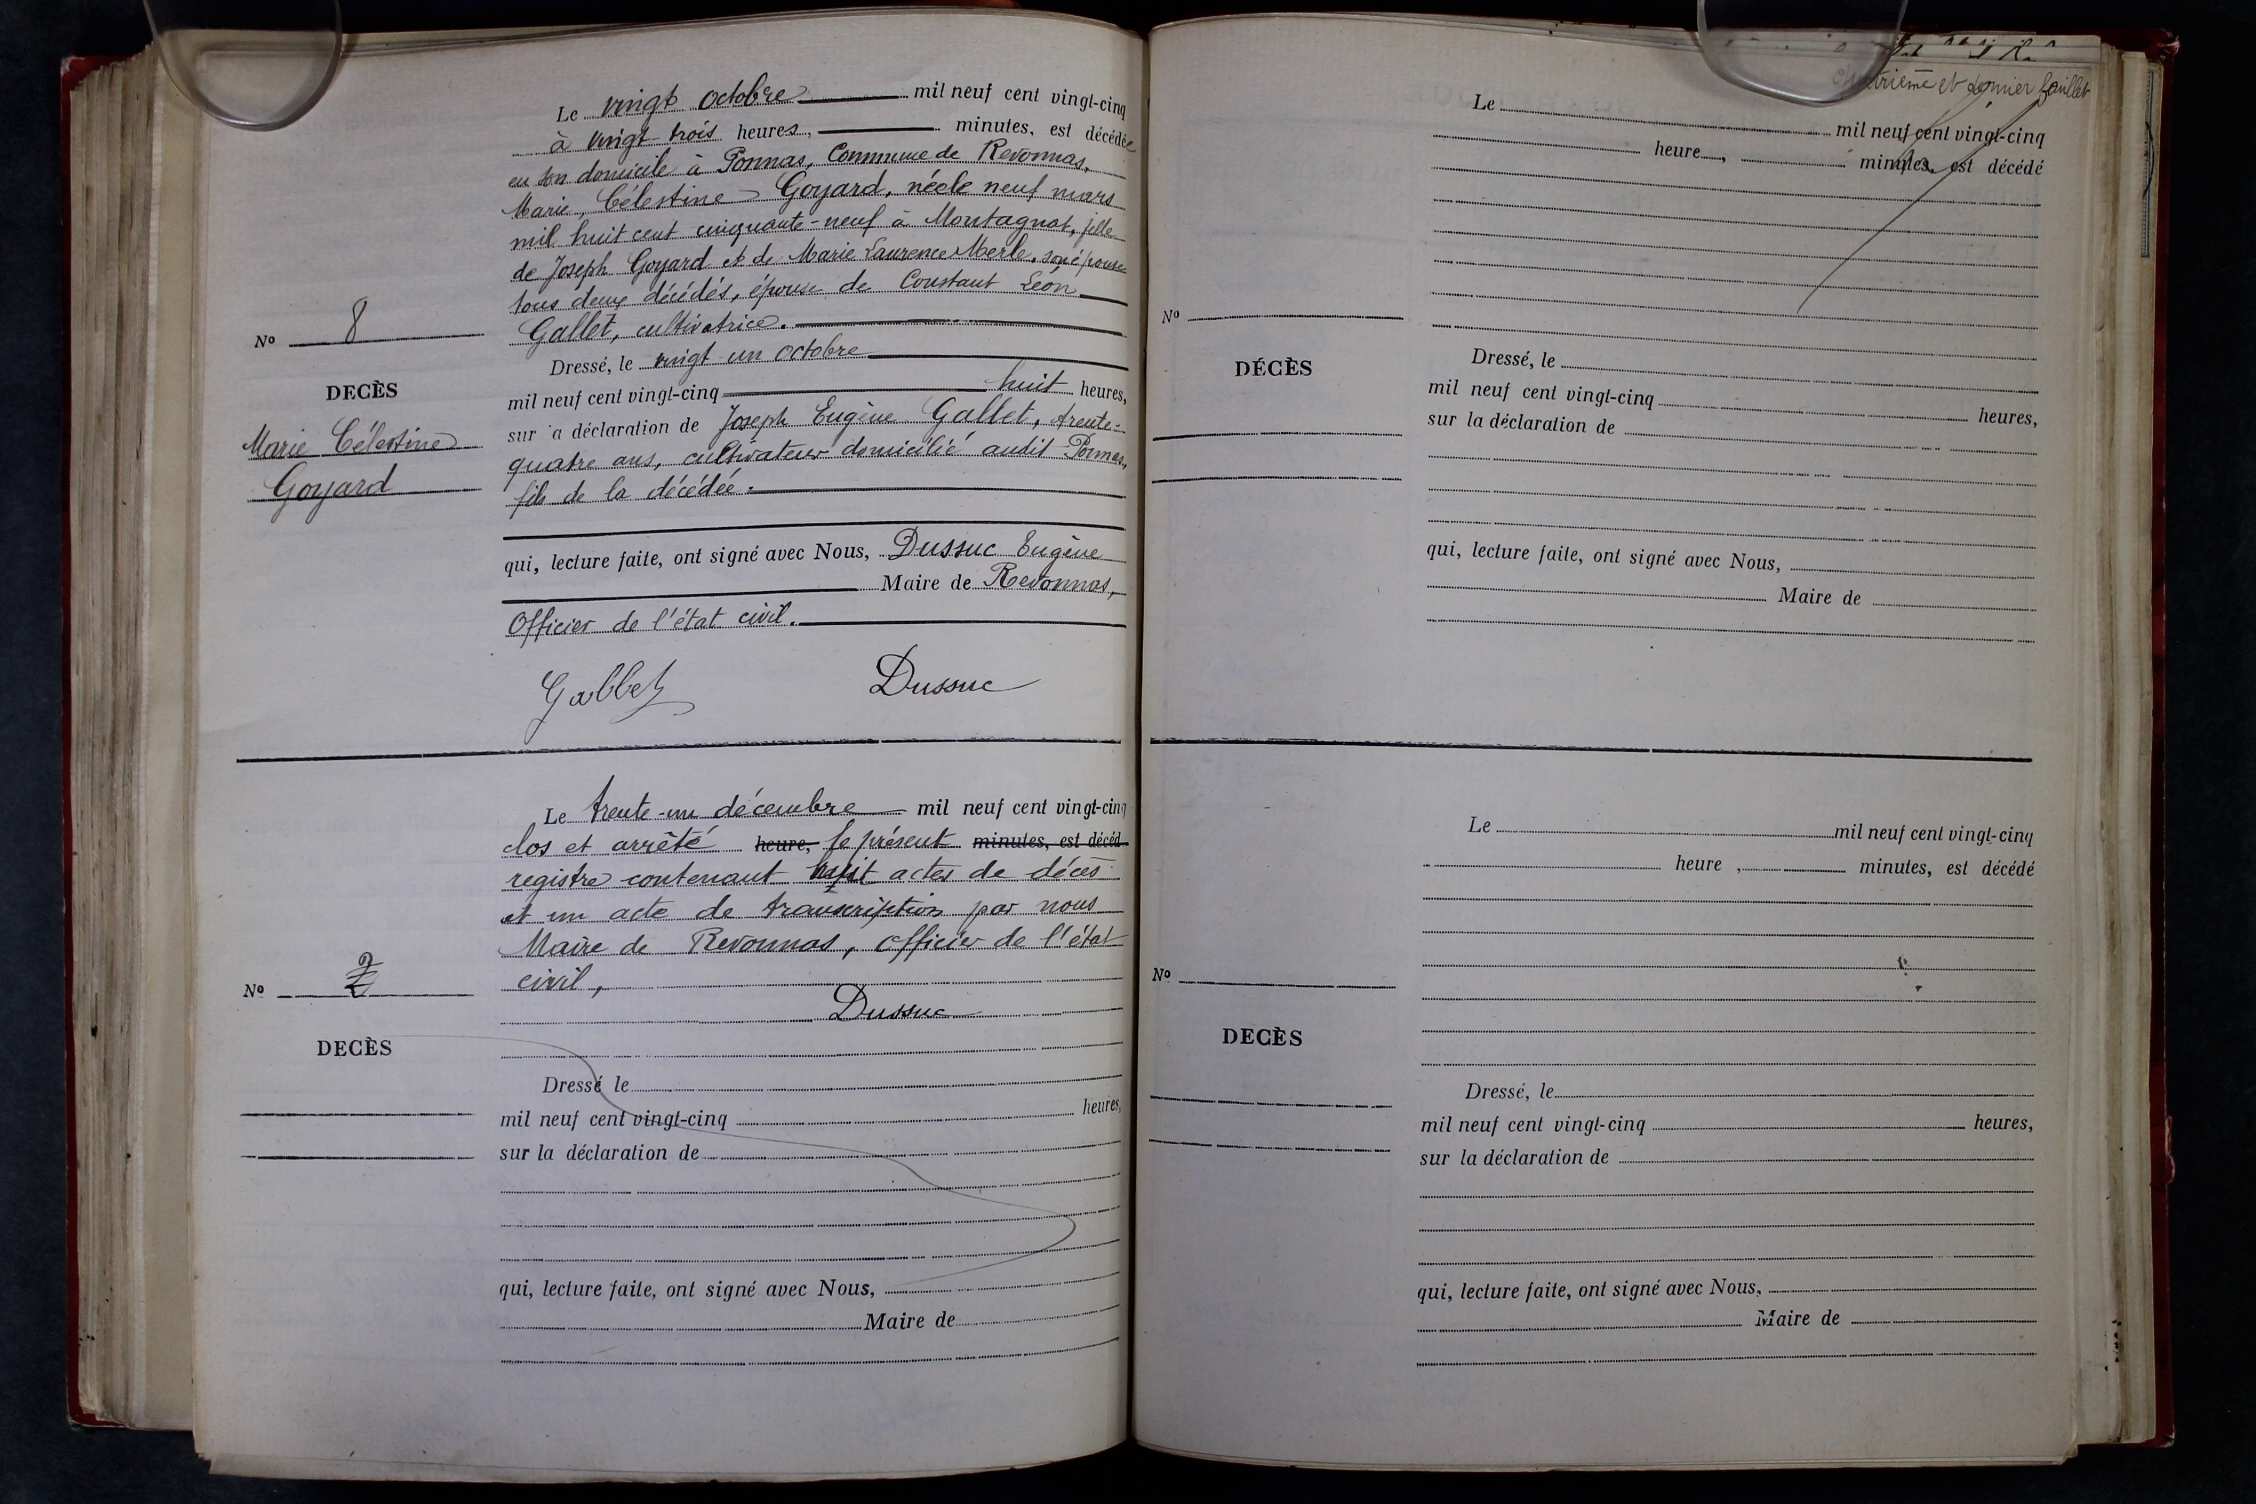 Le vingt octobre mil neuf cent vingt-cinq
à vingt trois heures, minutes, est décédée
en son domicile à Ponnas, Commune de Revonnas,
Marie, Célestine Goyard, née le neuf mars
mil huit cent cinquante-neuf à Montagnat, fille
de Joseph Goyard et de Marie Laurence Merle, son épouse
tous deux décédés, épouse de Constant Léon
Gallet, cultivatrice.
Dressé, le vingt-un octobre
mil neuf cent vingt-cinq huit heures,
sur a déclaration de Joseph Eugène Gallet, trente-
quatre ans, cultivateur domicilié audit Ponnas,
fils de la décédée.
qui, lecture faite, ont signé avec Nous, Dussuc Eugène
Maire de Revonnas,
Officier de l'état civil.
Gallet Dussuc
No 8
DECÈS
Marie Célestine
Goyard
Le trente-un décembre mil neuf cent vingt-cinq
clos et arrêté heure, le présent minutes, est décéd
registre contenant huit actes de décès
et un acte de transcription par nous
Maire de Revonnas, officier de l'état
civil,
Dussuc
No
DECÈS
Dressé le
mil neuf cent vingt-cinq heures,
sur la déclaration de
qui, lecture faite, ont signé avec Nous,
Maire de
et dernier feuillet
Le mil neuf cent vingt-cinq
heure, minutes, est décédé
No
DÉCÈS
Dressé, le
mil neuf cent vingt-cinq heures,
sur la déclaration de
qui, lecture faite, ont signé avec Nous,
Maire de
Le mil neuf cent vingt-cinq
heure, minutes, est décédé
No
DECÈS
Dressé, le
mil neuf cent vingt-cinq heures,
sur la déclaration de
qui, lecture faite, ont signé avec Nous,
Maire de